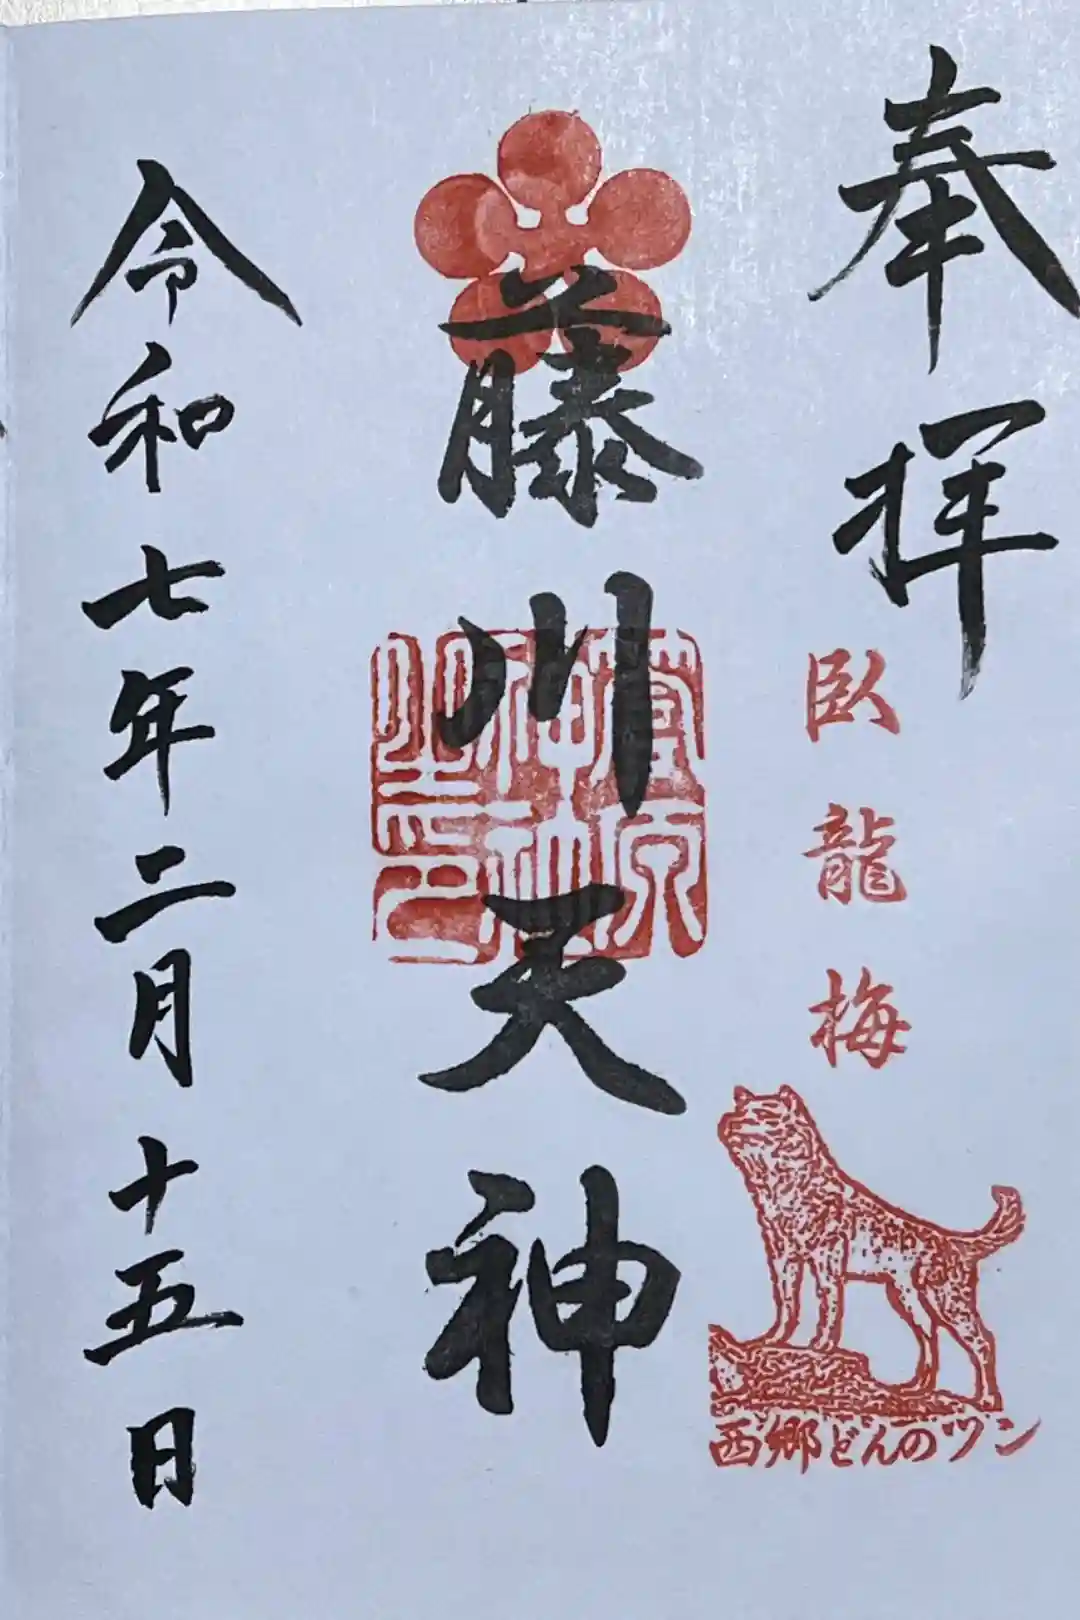 奉拝
臥龍梅
西郷どんのツン
藤川天神
令和七年二月十五日